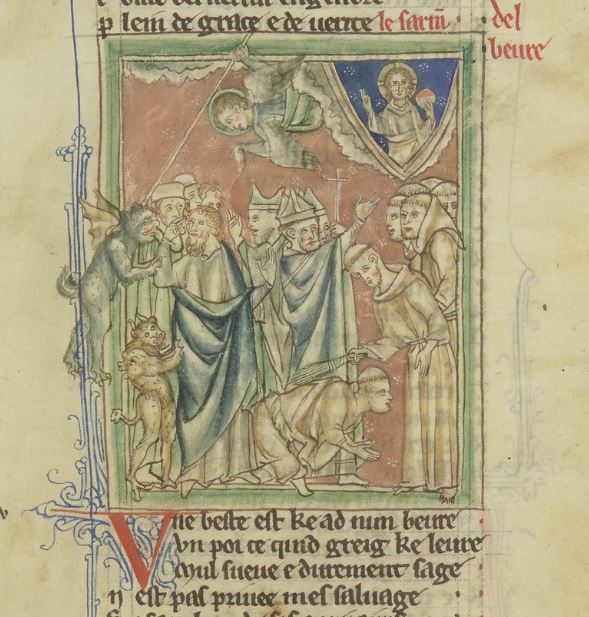 p lein de grace e de uerite le sarm̄
del
beure
Vne beste est ke ad nun beure
Vn poi ce quid greig ke leure
Mul sueue e durement sage
N est pas priuee mes saluage